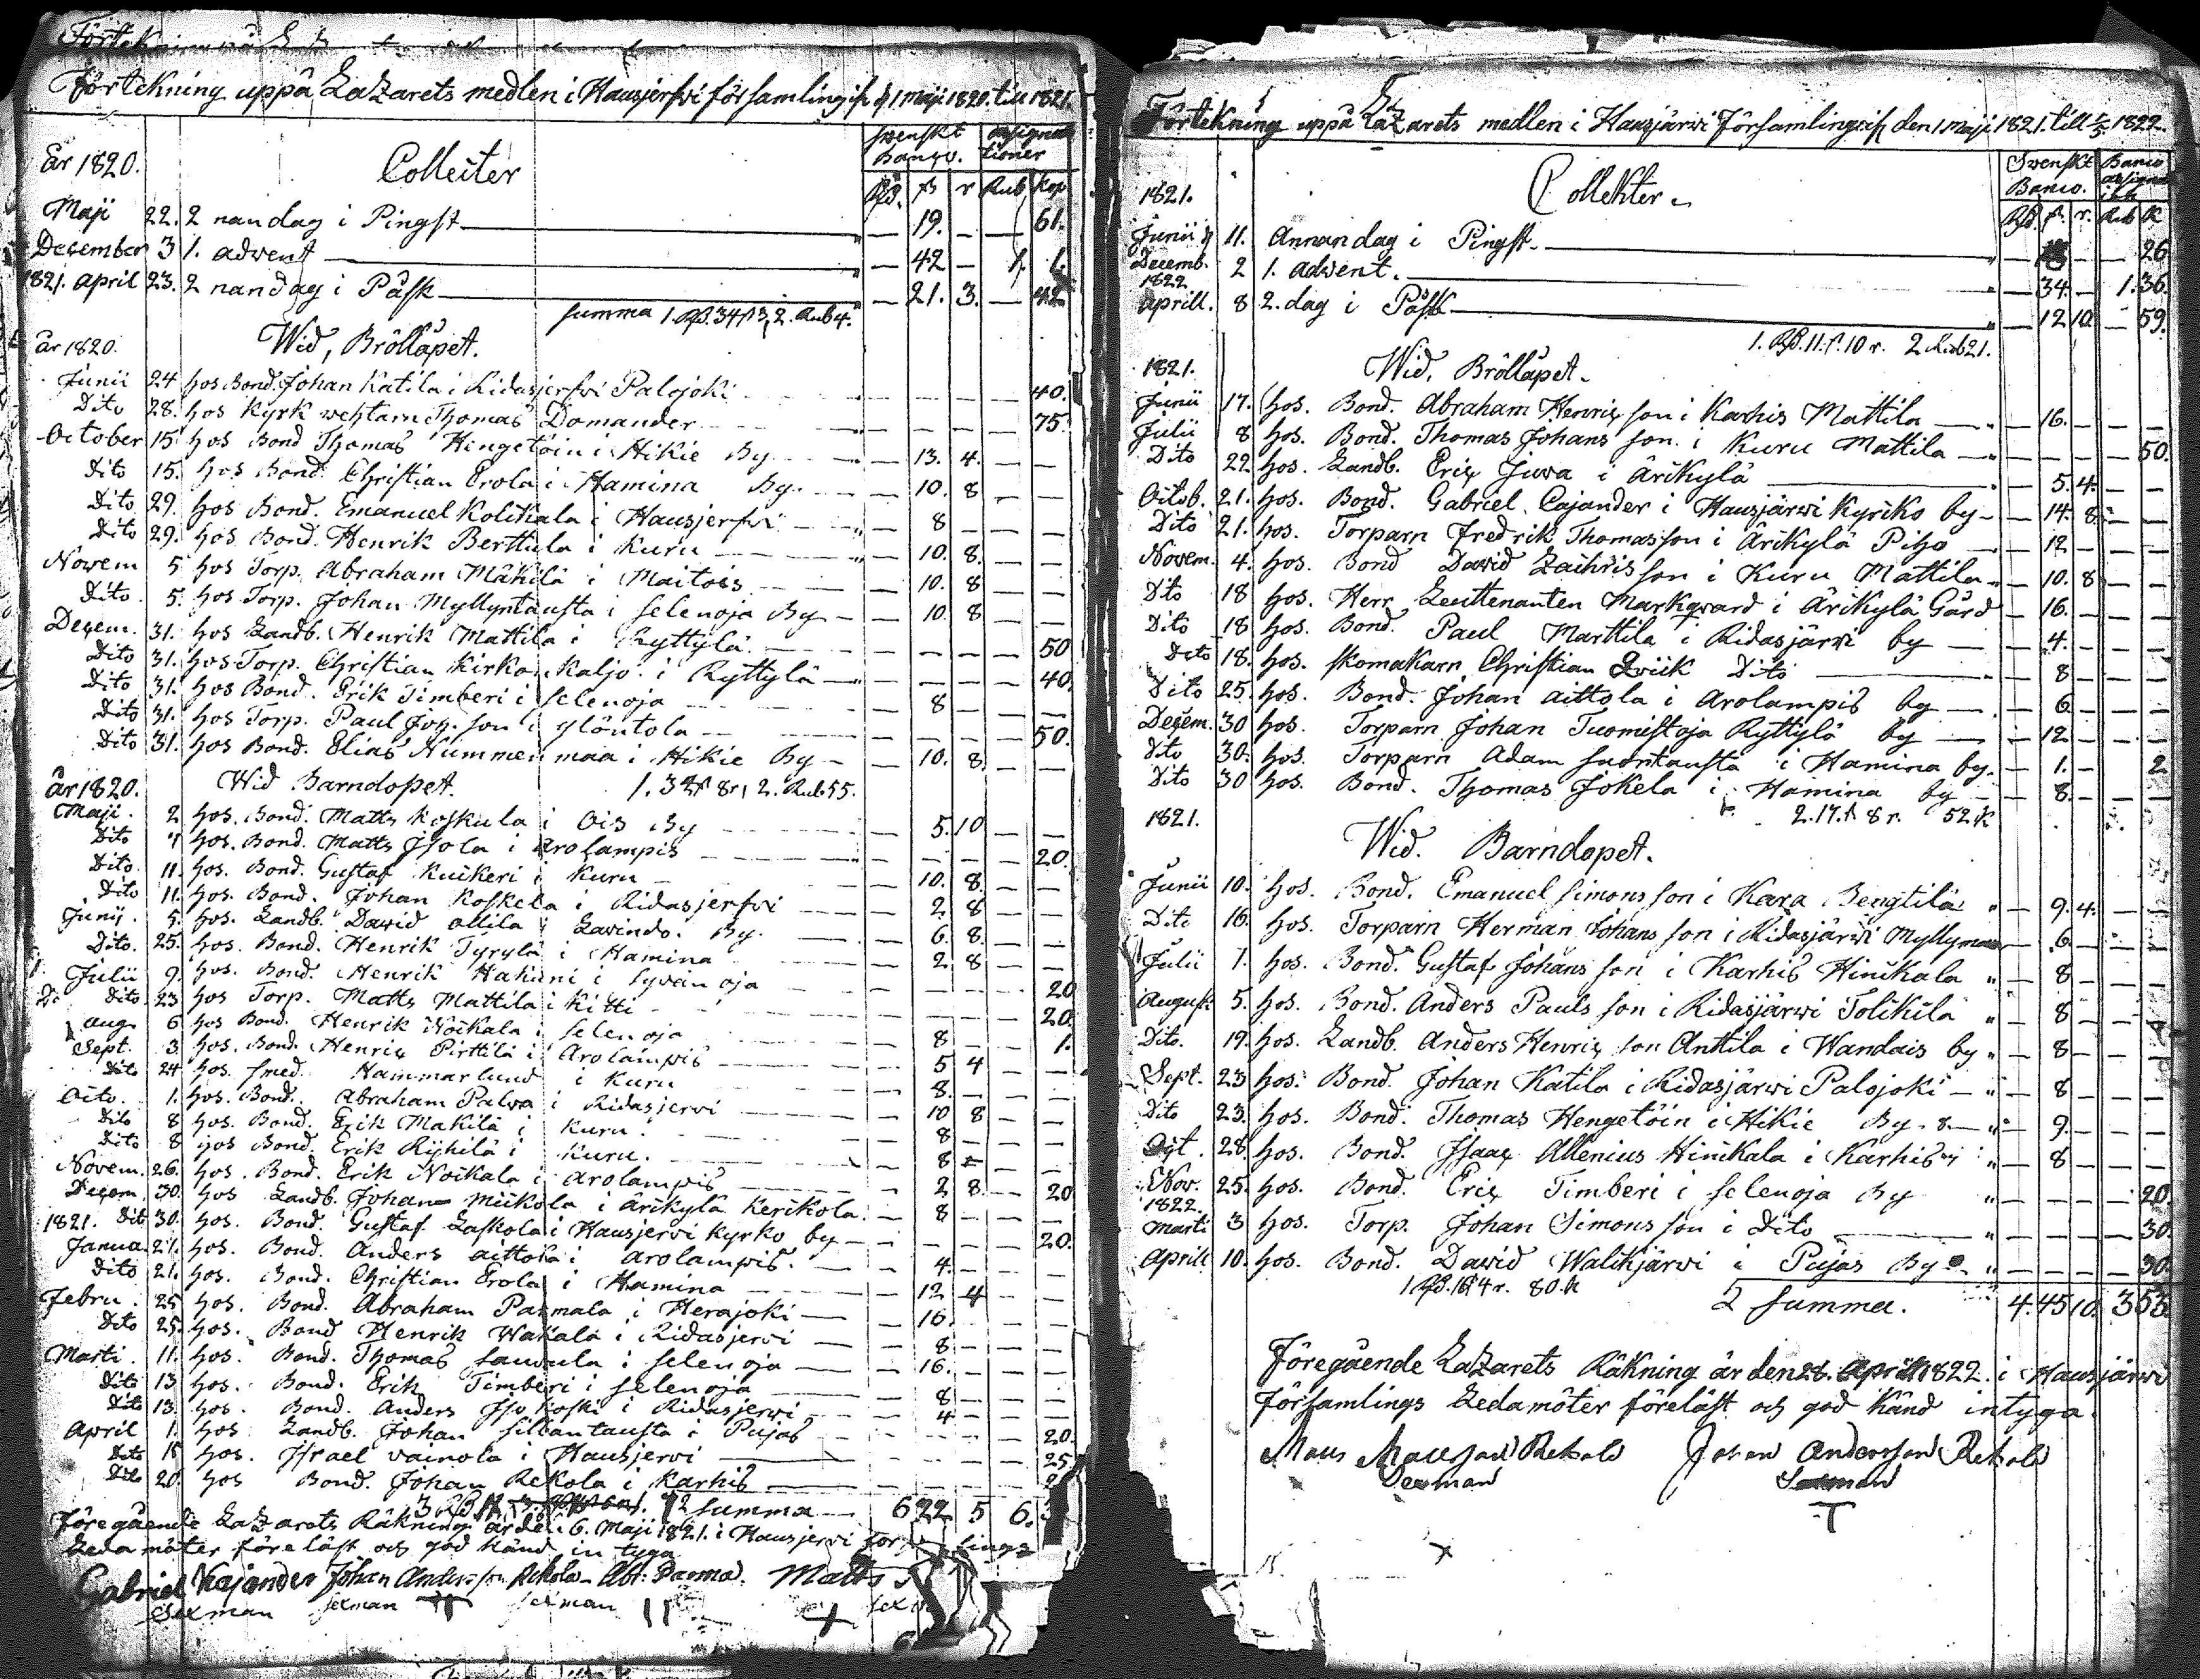 Förtekning uppå Lazarets medlen i Hausjerfvi församling ifr. d. 1 maji 1820. till 1821.
År 1820. Collecter Swenskt Banco. assignationer
Rd. ß r Rub. Kop
Maji 22. 2 nan dag i Pingst — 19. — — 61.
December 3 1. advent — 42 — 1. 1.
1821. april 23. 2 nan dag i Påsk — 21. 3. — 42
summa 1. Rd. 34 ß 3, 2. Rub 4.
år 1820. Wid, Bröllåpet.
Junii 24 hos Bond. Johan Katila i Ridasjerfvi Palojoki — — — — 40.
Dito 28. hos Kyrk wehtarn Thomas Domander — — — — 75.
October 15. hos Bond Thomas Hingetöin i Hikie By — 13. 4. — —
Dito 15. hos Bond. Christian Erola i Hamina By. — 10. 8 — —
Dito 29. hos Bond. Emanuel Kolikala i Hausjerfvi — 8 — — —
Dito 29. hos Bond. Henrik Berttula i Kuru — 10. 8. — —
Nowem 5 hos Torp. Abraham Mäkilä i Maitois — 10. 8 — —
Dito. 5. hos Torp. Johan Myllyntausta i selenoja By — 10. 8 — —
Decem. 31. hos Landb. Henrik Mattila i Ryttylä — — — — 50
Dito 31. hos Torp. Christian Kirkon Kaljo i Ryttylä — — — — 40.
Dito 31. hos Bond. Erik Timberi i selenoja — 8 — — —
Dito 31. hos Torp. Paul Joh. son i — — — — 50.
Dito 31. hos Bond. Elias Nummenmaa i Hikie By — 10. 8. — —
år 1820. Wid Barndopet. 1. 32 ß 8 r, 2. Rub 55.
Maji. 2 hos. Bond. Matts Koskula i Ois By — 5. 10 — —
Dito 4 hos. Bond. Matts Isola i Arolampis — — — — 20.
Dito. 11. hos. Bond. Gustaf Kuikeri i Kuru — 10. 8. — —
Dito 11. hos. Bond. Johan Koskela i Ridasjerfvi — 2 8 — —
Junij. 5. hos. Landb. Dawid ollila i Lavindo. By. — 6. 8. — —
Dito. 25. hos. Bond. Henrik Tyrylä i Hamina — 2 8 — —
Julii 9. hos. Bond. Henrik Hakuni i Syvänoja — — — — 20
Dito. 23 hos Torp. Matts Mattila i Kitti — — — — 20.
Aug. 6 hos Bond. Henrik Noikala i selenoja — 8 — — 1.
Sept. 3. hos. Bond. Henric Pirttilä i Arolampis — 5 4 — —
Dito 24 hos. smed. Hammarlund i Kuru — 8. — — —
Octo. 1. hos. Bond. Abraham Palva i Ridasjervi — 10 8 — —
Dito 8 hos. Bond. Erik Makilä i Kuru. — 8 — — —
Dito 8 hos Bond. Erik Ryhilä i Kuru. — 8 — — —
Novem. 26. hos. Bond. Erik Noikala i Arolampis — 2 8. — 20
Decem. 30. hos Landb. Johan Miikola i Ärikylä Kerikola. — 8 — — —
1821. Dit 30. hos. Bond. Gustaf Laskola i Hausjervi kyrko by — — — — 20.
Janua. 21. hos. Bond. Anders aittola i Arolampis. — 4. — — —
Dito 21. hos. Bond. Christian Erola i Hamina — 12 4 — —
Febru. 25 hos. Bond. Abraham Parmala i Herajoki — 16. — — —
Dito 25. hos. Bond Henrik Wakala i Ridasjervi — 8 — — —
Marti. 11. hos. Bond. Thomas sauvula i selenoja — 16. — — —
Dito 13 hos. Bond. Erik Timberi i selenoja — 8 — — —
Dito 13. hos. Bond. Anders Iso Koski i Ridasjerwi — 4 — — —
April 1. hos Landb. Johan sillantausta i Pujas — — — — 20.
Dito 15 hos. Israel vainola i Hausjervi — — — — 25
Dito 20. hos Bond. Johan Rekola i Karhis
summa 6 22 5 6.
Föregående Lazarets Räkning är den 6. Maji 1821. i Hausjervi
Zedamöter föreläst och god känd intyga
Gabriel Kajander Johan Andersson Rekola Abr: Parma. Matts
sexman sexman sexman
Förtekning uppå Lazarets medlen i Hausjärwi Församling ifr. den 1 maji 1821. till 1/5 1822.
1821. Collekter. Swenskt Banco. Banco assigna
Rd. ß. r. Rub K
Junii d. 11. Annan dag i Pingst. — — — 26.
Decemb. 2 1. adwent. — 34. — 1. 36.
1822.
Aprill. 8 2. dag i Påsk — 12 10. — 59.
1. Rd. 11. ß. 10 r. 2 Rub 21.
1821. Wid, Bröllåpet.
Junii 17. hos. Bond. Abraham Henricson i Karhis Mattila — 16. — — —
Julii 8 hos. Bond. Thomas Johans son. i Kuru Mattila — — — — 50.
Dito 22 hos. Landb. Eric Juva i Ärikylä — 5. 4. — —
Octob. 21. hos. Bond. Gabriel Cajander i Hausjärwi Kyrko by — 14. 8. — —
Dito 21. hos. Torparn Fredrik Thomasson i Ärikylä Piho — 12 — — —
Novem. 4. hos. Bond Dawid Zachris son i Kuru Mattila — 10. 8 — —
Dito 18 hos. Herr Leuttenanten Markqvard i Ärikylä Gård — 16. — — —
Dito 18 hos. Bond. Paul Marttila i Ridasjärwi by — 4. — — —
Dito 18. hos. skomakarn Christian Qviik Dito — 8 — — —
Dito 25. hos. Bond. Johan aittola i Arolampis by — 6 — — —
Decem. 30 hos. Torparn Johan Tuomistoja Ryttylä by — 12 — — —
Dito 30. hos. Torparn Adam suontausta i Hamina by. — 1. — — 2
Dito 30 hos. Bond. Thomas Jokela i Hamina by — 8. — — —
2. 17. ß 8 r. 52. K
1821. Wid. Barndopet.
Junii 10. hos. Bond. Emanuel simons son i Kara Bengtilä — 9. 4. — —
Dito 16. hos. Torparn Herman Johans son i Ridasjärwi Myllymaa — 6. — — —
Julii 1. hos. Bond. Gustaf Johans son i Karhis Hinikala — 8 — — —
August. 5. hos. Bond. Anders Pauls son i Ridasjärwi Tolikila — 8 — — —
Dito. 19. hos. Landb. Anders Henric son Anttila i Wandais by — 8 — — —
Sept. 23 hos. Bond. Johan Katila i Ridasjärwi Palojoki — 8 — — —
Dito 23. hos. Bond. Thomas Hengetöin i Hikie By. — 9. — — —
Oct. 28. hos. Bond. Isaac Allenius Hinikala i Karhis — 8 — — —
Nov. 25. hos. Bond. Eric Timberi i selenoja By — — — — 20.
1822.
Marti 3 hos. Torp. Johan Simons son i Dito — — — — 30.
Aprill 10. hos. Bond. Dawid Walikjärwi i Pujas By — — — — 30.
1 Rd. 16 ß 4 r. 80. K
2 summa. 4. 45 10. 3 53.
Föregående Lazarets Räkning är den 28. April 1822. i Hausjärwi
Församlings Zedamöter föreläst och god känd intyga.
Johan Andersson Rekola
Sexman Sexman